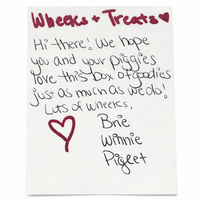 Wheeks + Treats
Hi there! We hope
you and your piggies
love this box of goodies
just as much as we do!
Lots of wheeks,
Brie
Winnie
Piglet